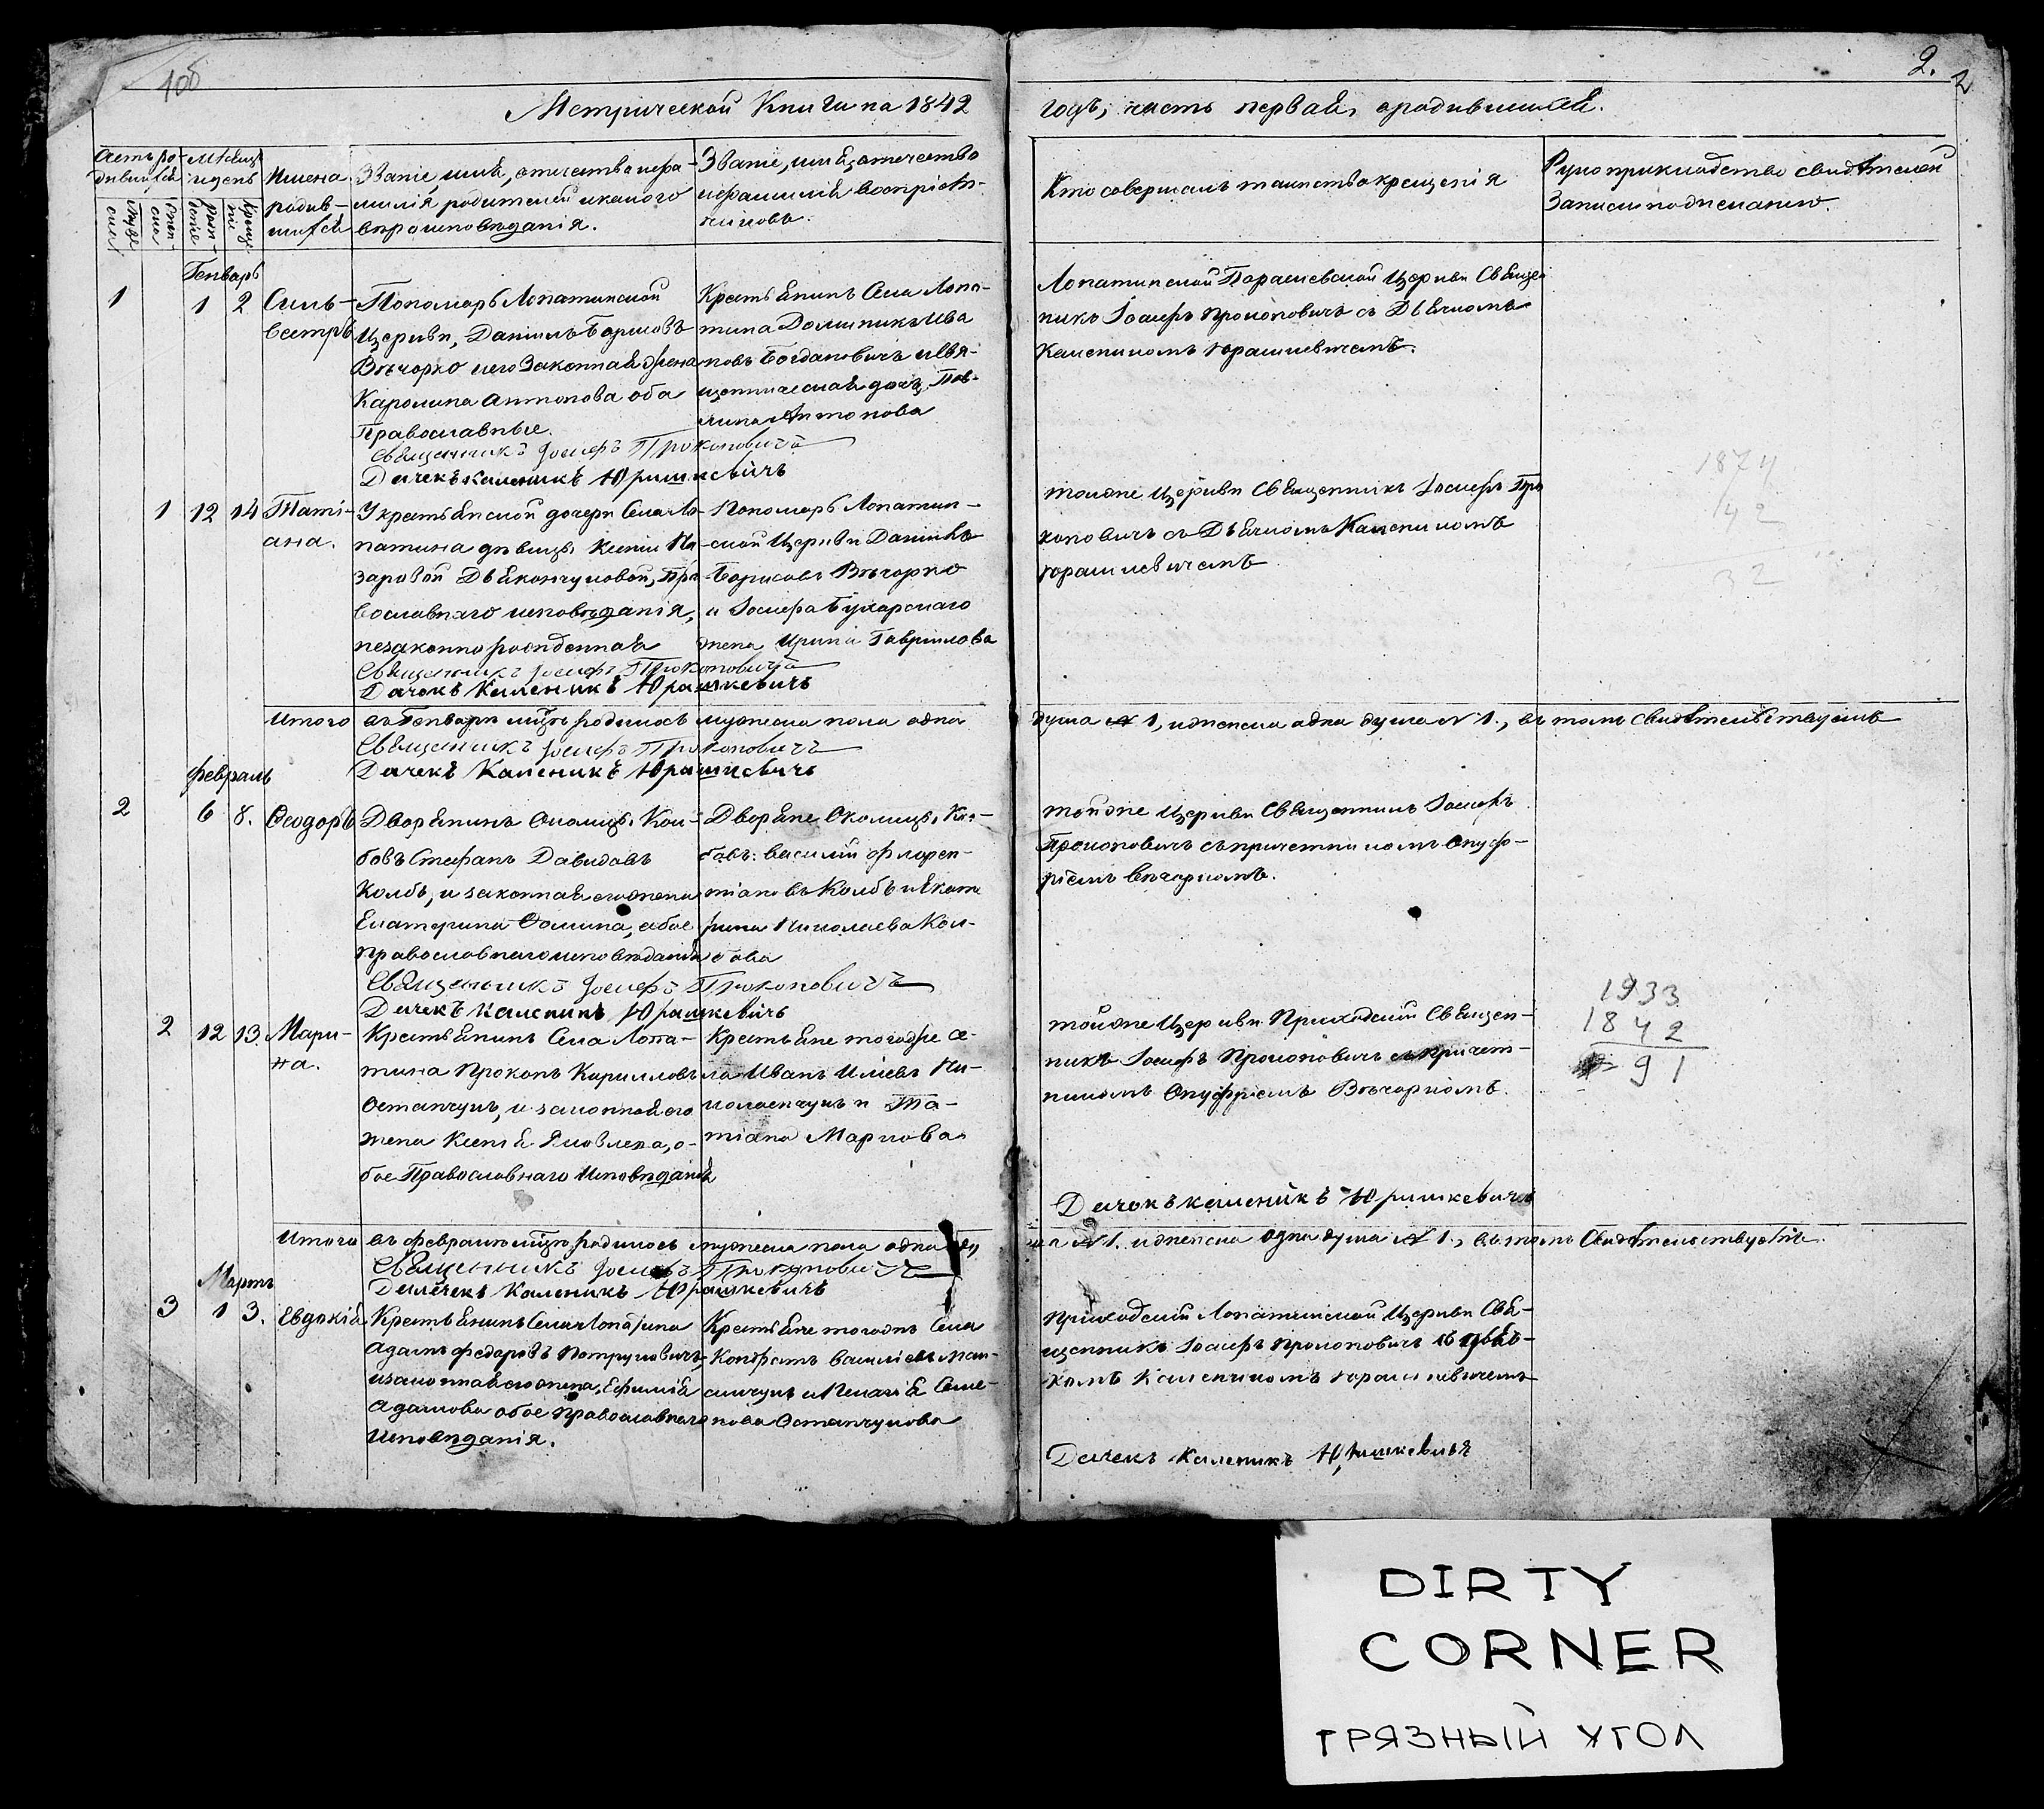 2. 2
Метрической Книги на 1842
годъ, часть первая, ародившихся.
Счетъ родившихся
Мѣсяцъ и день
Имена родившихся
Званіе, имя, отечество и фамилія родителей и какого вѣроисповѣданія.
Званіе, имя, отечество и фамилія воспріемниковъ.
Кто совершалъ таинство крещенія
Рукоприкладство свидѣтелей записи по желанію.
Генварь
1 1 2 Сильвестръ
Пономарь Лопатинской
Церкви, Даніилъ Борисовъ
Вѣчорко и его Законная Жена
Каролина Антонова оба
Православные.
Крестьянинъ Села Лопатина
Доминикъ Ивановъ Богдановичъ
Антонова
Лопатинской Церкви Священникъ
Іосифъ Прокоповичъ съ Дьячкомъ
Каленикомъ Юрашкевичемъ.
Священникъ Іосифъ Прокоповичъ
Дячекъ Каленикъ Юрашкевичъ
1 12 14 Татіана.
У крестьянской дочери Села Лопатина
дѣвицы Ксеніи
православнаго исповѣданія,
незаконно рожденная
Пономарь Лопатинской
Церкви Даніилъ
Борисовъ Вѣчорко
и Іосифа
жена Ирина Гаврилова
тойже Церкви Священникъ Іосифъ Прокоповичъ
съ Дьячкомъ Каленикомъ
Юрашкевичемъ
Священникъ Іосифъ Прокоповичъ
Дячокъ Каленикъ Юрашкевичъ
Итого въ Генварѣ мцѣ родилось мужеска пола одна душа № 1, и женска одна душа № 1., въ томъ свидѣтельствуемъ
Священникъ Іосифъ Прокоповичъ
Дячекъ Каленикъ Юрашкевичъ
Февраль
2 6 8. Ѳеодоръ
Дворянинъ Околицы Колбовъ
Стефанъ Давидовъ
Колбъ, и законная его жена
Екатерина Ѳомина, обое
православнаго исповѣданія
Дворяне Околицы Колбовъ:
Василій Флорентіановъ
Колбъ и Екатерина
Николаева Колбова
тойже Церкви Священникъ Іосифъ
Прокоповичъ съ причетникомъ Онуфріемъ
Вѣчоркомъ.
Священникъ Іосифъ Прокоповичъ
Дячекъ Каленикъ Юрашкевичъ
2 12 13. Марина.
Крестьянинъ Села Лопатина
Прокопъ Кирилловъ
Остапчукъ, и законная его
жена Ксенія Яковлева, обое
Православнаго Исповѣданія
Крестьяне тогоже Села
Иванъ Иліевъ
и Татіана Маркова
тойже Церкви Приходскій Священникъ
Іосифъ Прокоповичъ съ причетникомъ
Онуфріемъ Вѣчоркомъ.
Дячокъ Каленикъ Юрашкевичъ
1874
42
32
1933
1842
91
Итого въ Февралѣ мцѣ родилось мужеска пола одна душа № 1. и женска одна душа № 1., въ томъ Свидѣтельствуемъ.
Священникъ Іосифъ Прокоповичъ
Дячекъ Каленикъ Юрашкевичъ
Мартъ
3 1 3. Евдокія
Крестьянинъ Села Лопатина
Адамъ Федоровъ Петруковичъ,
и законная его жена, Ефимія
Адамова обое православнаго
исповѣданія.
Крестьяне тогожъ Села
Кондратъ
и Пелагія Семенова
Остапчукова
Приходскій Лопатинской Церкви Священникъ
Іосифъ Прокоповичъ съ дьячкомъ
Каленикомъ Юрашкевичемъ
Дячекъ Каленикъ Юрашкевичъ
DIRTY
CORNER
ГРЯЗНЫЙ УГОЛ